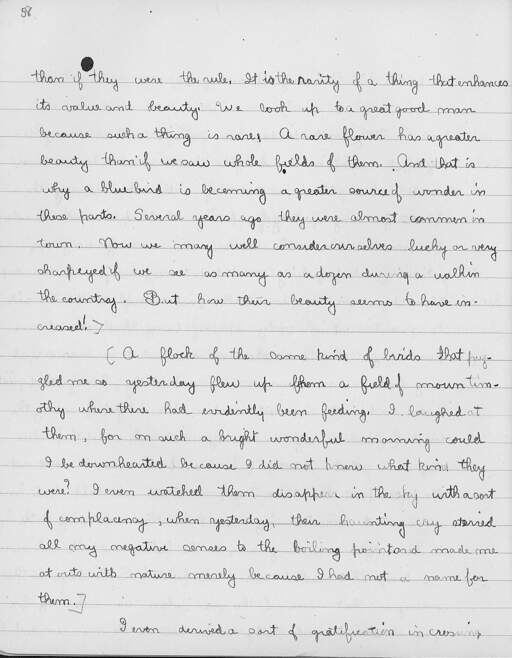 58
than if they were the rule. It is the rarity of a thing that enhances
its value and beauty. We look up to a great good man
because such a thing is rare, A rare flower has a greater
beauty than if we saw whole fields of them. And that is
why a blue bird is becoming a greater source of wonder in
these parts. Several years ago they were almost common in
town. Now we may well consider ourselves lucky or very
sharpeyed if we see as many as a dozen during a walk in
the country. But how their beauty seems to have in-
creased!]
[A flock of the same kind of birds that puz-
zled me so yesterday flew up from a field of mown tim-
othy where there had evidently been feeding. I laughed at
them, for on such a bright wonderful morning could
I be downhearted because I did not know what kind they
were? I even watched them disappear in the sky with a sort
of complacency, when yesterday, their haunting cry stirred
all my negative senses to the boiling point and made me
at outs with nature merely because I had not a name for
them.]
I even derived a sort of gratification in crossing